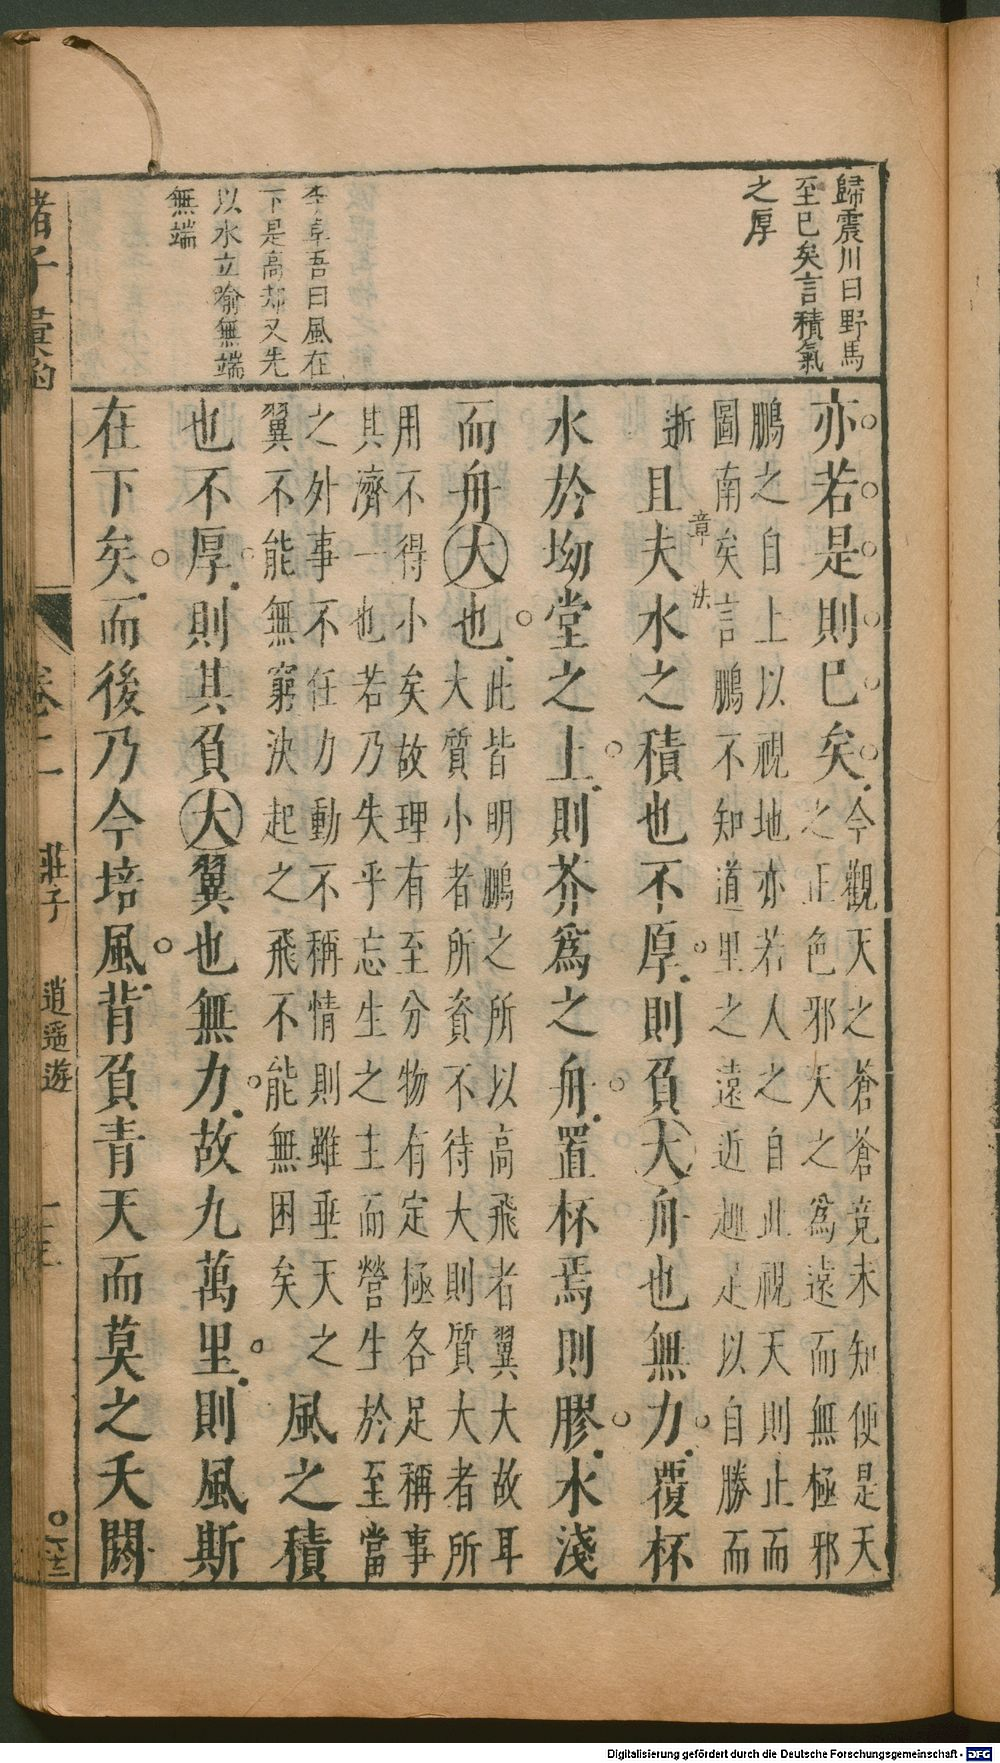 歸震川曰野馬
至已矣言積氣
之厚
李阜吾曰風在
下是高却又先
以水立喻無端
無端
亦若是則已矣今觀天之蒼蒼竟未知便是天
之正色邪天之為遠而無極邪
鵬之自上以視地亦若人之自此視天則止而
圖南矣言鵬不知道里之遠近趣足以自勝而
逝且夫水之積也不厚則負大舟也無力覆杯
章
法
水於坳堂之上則芥為之舟置杯焉則膠水淺
而舟大也此皆明鵬之所以高飛者翼大故耳
大質小者所資不待大則質大者所
用不得小矣故理有至分物有定極各足稱事
其濟一也若乃失乎忘生之主而營生於至當
之外事不任力動不稱情則雖垂天之
翼不能無窮決起之飛不能無困矣
風之積
也不厚則其負大翼也無力故九萬里則風斯
在下矣而後乃今培風背負青天而莫之夭閼
諸子彙函
卷二 莊子 逍遙遊
Digitalisierung gefördert durch die Deutsche Forschungsgemeinschaft - DFG